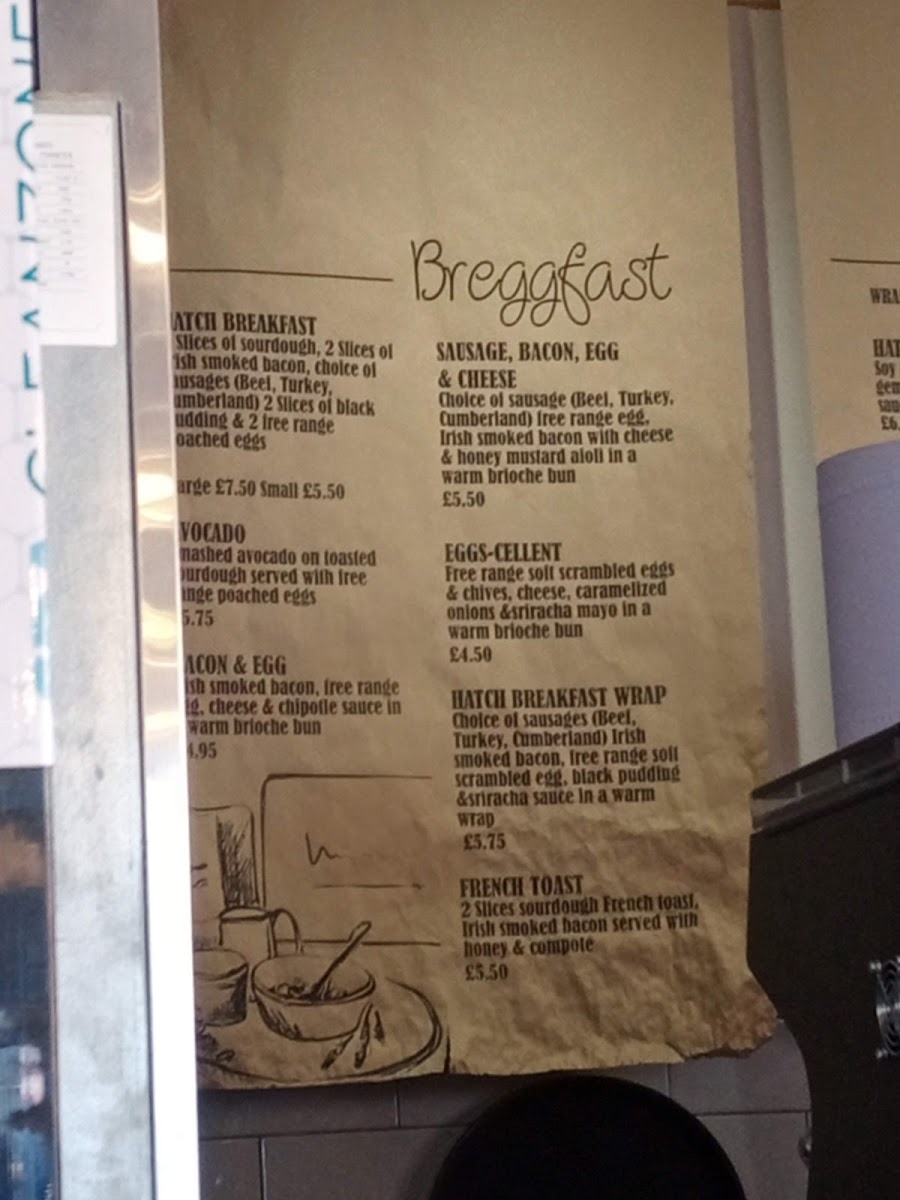 CLEANZONE
Breggfast
ATCH BREAKFAST
Slices of sourdough, 2 Slices of
ish smoked bacon, choice of
usages (Beef, Turkey,
umberland) 2 Slices of black
udding & 2 free range
oached eggs
arge £7.50 Small £5.50
VOCADO
mashed avocado on toasted
ourdough served with free
ange poached eggs
5.75
ACON & EGG
ish smoked bacon, free range
gg, cheese & chipotle sauce in
warm brioche bun
4.95
SAUSAGE, BACON, EGG
& CHEESE
Choice of sausage (Beef, Turkey,
Cumberland) free range egg,
Irish smoked bacon with cheese
& honey mustard aioli in a
warm brioche bun
£5.50
EGGS-CELLENT
Free range soft scrambled eggs
& chives, cheese, caramelized
onions &sriracha mayo in a
warm brioche bun
£4.50
HATCH BREAKFAST WRAP
Choice of sausages (Beef,
Turkey, Cumberland) Irish
smoked bacon, free range soft
scrambled egg, black pudding
&sriracha sauce in a warm
wrap
£5.75
FRENCH TOAST
2 Slices sourdough French toast,
Irish smoked bacon served with
honey & compote
£5.50
WRA
HAT
Soy
gem
sau
£6.